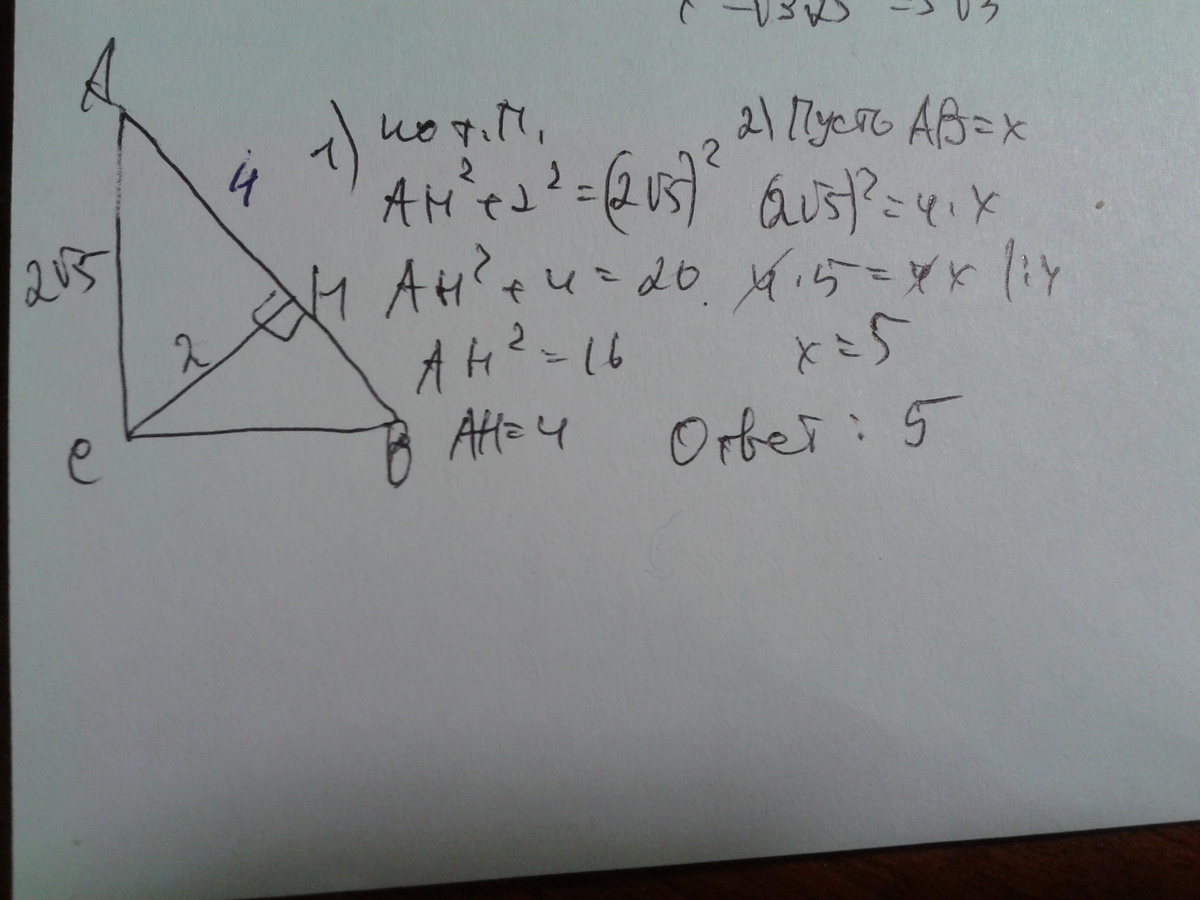 -√3√5 = 3√3
A
4
2√5
H
2
C
B
1) по т.П.
AH² + 2² = (2√5)²
AH² + 4 = 20
AH² = 16
AH = 4
2) Пусть AB = x
(2√5)² = 4 · x
4 · 5 = 4x |:4
x = 5
Ответ: 5